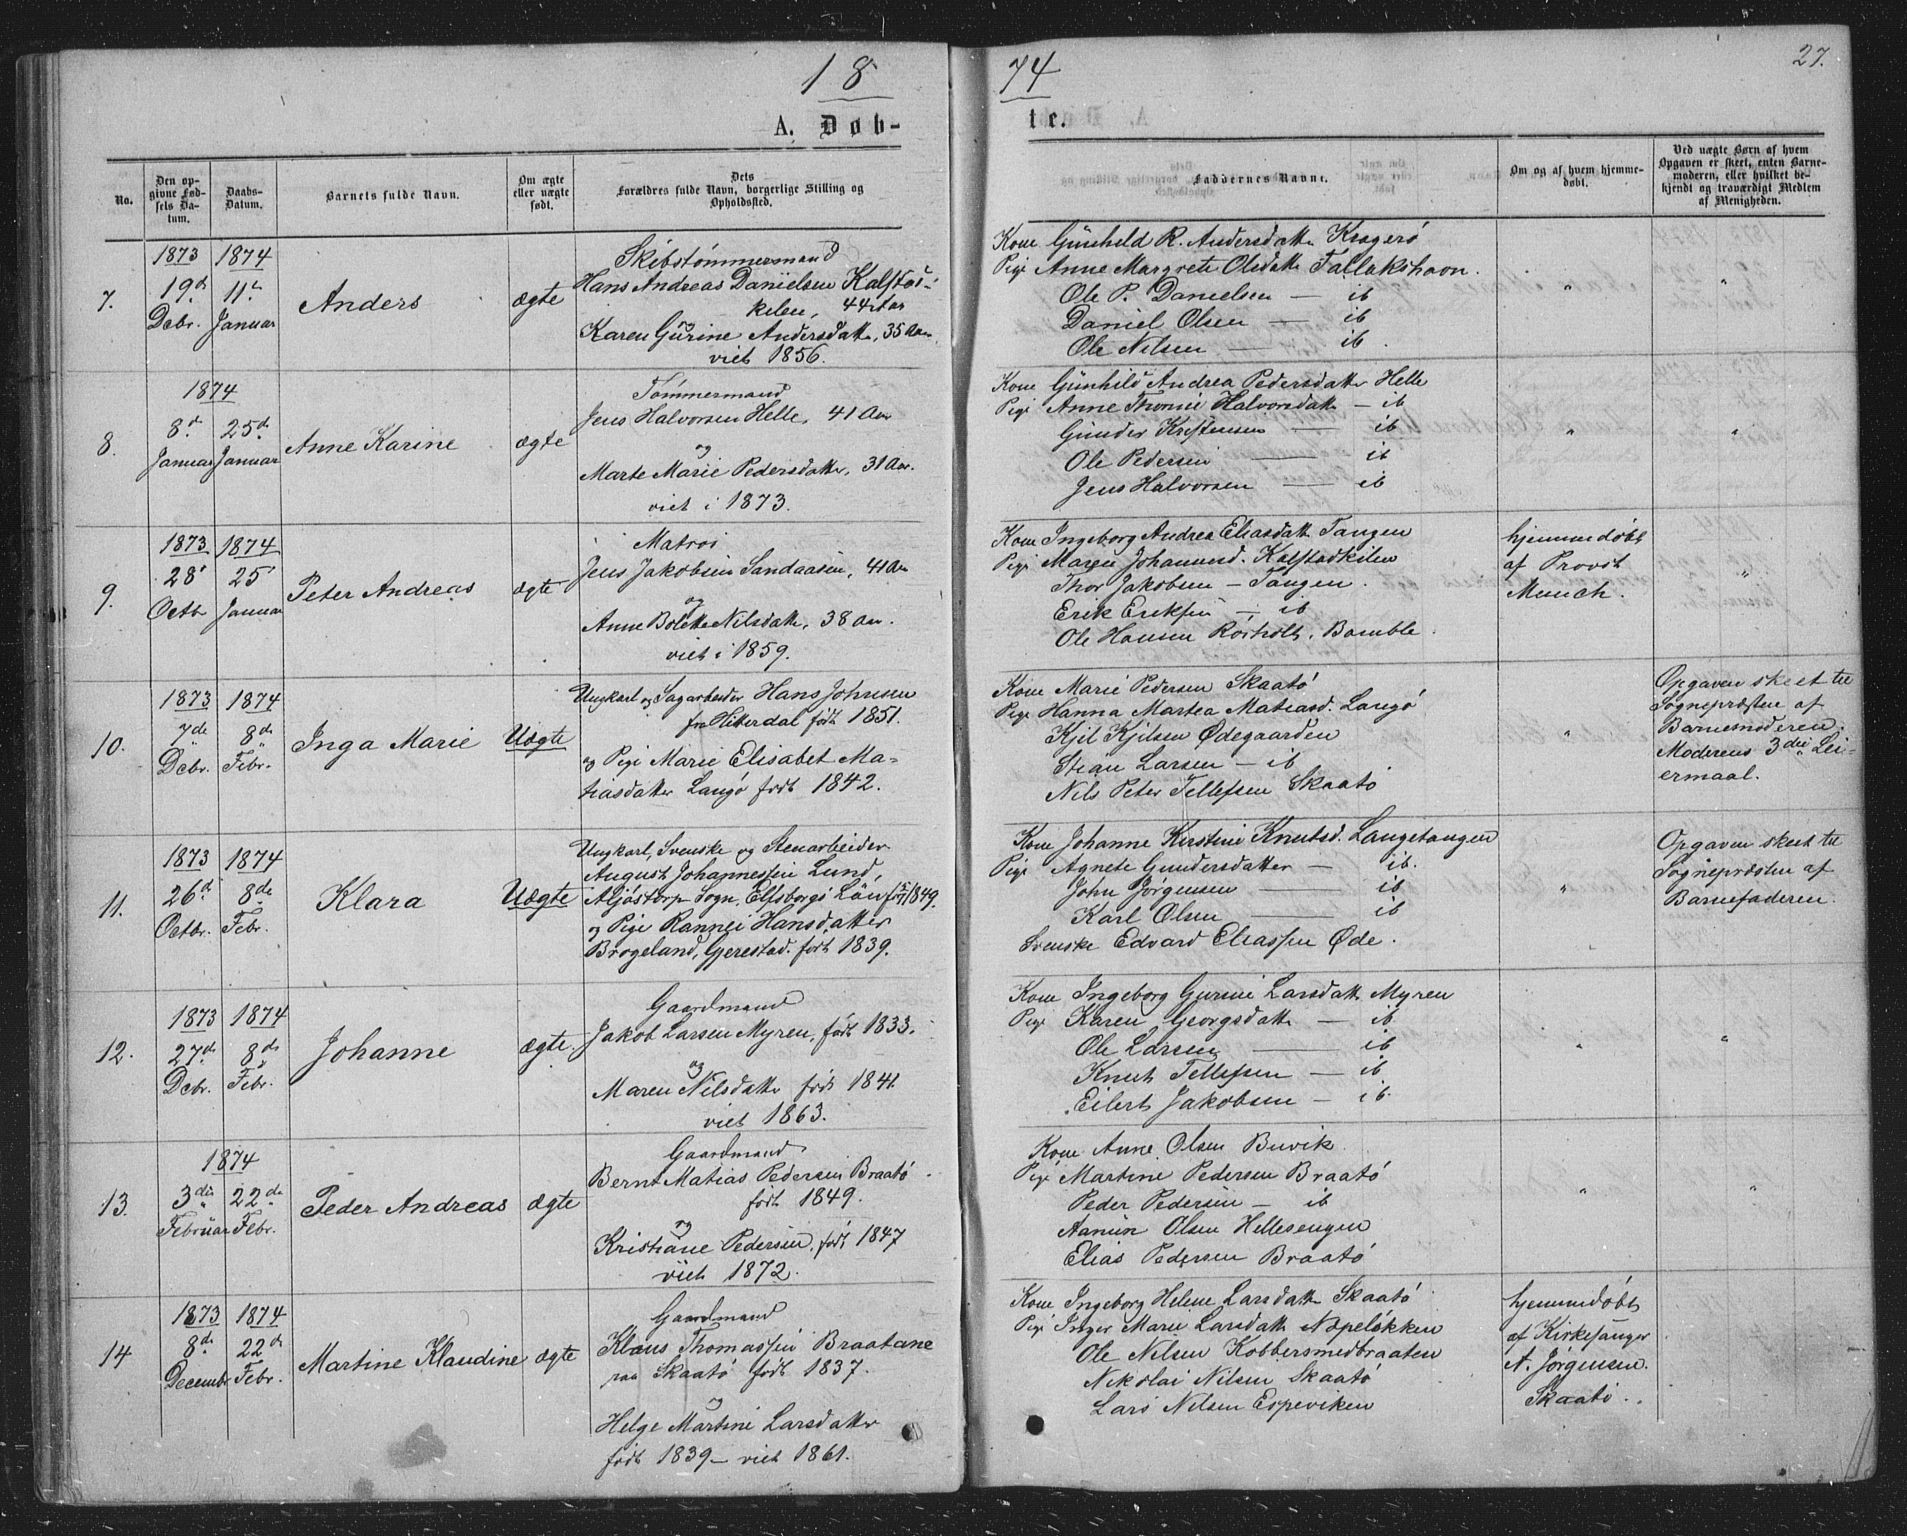 18
74
27.
A. Døb-
te.
No.
Den opgivne Fødsels Datum.
Daabs-Datum.
Barnets fulde Navn.
Om ægte eller uægte født.
Dets Forældres fulde Navn, borgerlige Stilling og Opholdssted.
Faddernes Navne.
Om og af hvem hjemmedøbt.
Ved uægte Børn af hvem Opgaven er skeet, enten Barnemoderen, eller hvilket bekjendt og troværdigt Medlem af Menigheden.
7.
1873
19de
Debr.
1874
11te
Januar
Anders
ægte
Skibstømmermand
Hans Andreas Danielsen Kalstad-
kilen, 44 Aar
og
Karen Gurine Andersdatt., 35 Aar.
viet 1856.
Kone Günhild R. Andersdatt. Kragerø
Pige Anne Margrete Olsdatt. Tallakshavn.
Ole P. Danielsen — ib
Daniel Olsen — ib
Ole Nilsen — ib.
"
"
8.
1874
8de
Januar
25de
Januar
Anne Karine
ægte
Tømmermand
Jens Halvorsen Helle, 41 Aar
og
Marte Marie Pedersdatter, 31 Aar.
viet i 1873.
Kone Günhild Andrea Pedersdatter Helle
Pige Anne Thomine Halvorsdatt. — ib
Gunder Kristensen — ib
Ole Pedersen — ib
Jens Halvorsen — ib
"
"
9.
1873
28
Octbr
1874
25
Januar
Peter Andreas
ægte
Matros
Jens Jakobsen Sandaasen, 41 Aar
og
Anne Bolette Nilsdatt., 38 Aar.
viet i 1859.
Kone Ingeborg Andrea Eliasdatt. Tangen
Pige Maren Johannesd. Kalstadkilen
Thor Jakobsen — Tangen.
Erik Eriksen — ib
Ole Hansen Rörholt, Bamble.
hjemmedøbt
af Provst
Munch.
"
10.
1873
7de
Debr.
1874
8de
Febr.
Inga Marie
Uægte
Ungkarl og Sagarbeider Hans Johnsen
fra Hiterdal født 1851.
og Pige Marie Elisabet Ma-
tiasdatter Langø født 1842.
Kone Marie Pedersen Skaatø
Pige Hanna Martea Matiasd. Langø
Kjil Kjilsen Ødegaarden
Stean Larsen — ib
Nils Peter Tellefsen Skaatø
"
Opgaven skeet til
Sognepræsten af
Barnemoderen.
Moderens 3die Lei-
ermaal.
11.
1873
26de
Octbr.
1874
8de
Febr.
Klara
Uægte
Ungkarl, Svenske og Stenarbeider
August Johannessen Lund,
Aljöstorp Sogn, Elfsborgs Län født 1849.
og Pige Rannei Hansdatter
Brøgeland, Gjerestad. født 1839.
Kone Johanne Kirstine Knutsd. Langetangen
Pige Agnete Gundersdatter — ib.
John Jørgensen — ib
Karl Olsen — ib
Svenske Edvard Eliassen Øde.
"
Opgaven skeet til
Sognepræsten af
Barnefaderen.
12.
1873
27de
Debr.
1874
8de
Febr.
Johanne
ægte.
Gaardmand
Jakob Larsen Myren, født 1833.
og
Maren Nilsdatt. født 1841.
viet 1863.
Kone Ingeborg Gurine Larsdatt. Myren
Pige Karen Georgsdatt. — ib
Ole Larsen — ib
Knut Tellefsen — ib
Eilert Jakobsen — ib.
"
"
13.
1874
3die
Februar
22de
Febr.
Peder Andreas
ægte
Gaardmand
Bernt Matias Pedersen Braatø
født 1849.
og
Kristiane Pedersen, født 1847
viet 1872.
Kone Anne Olsen Buvik
Pige Martine Pedersen Braatø
Peder Pedersen — ib
Aanun Olsen Hellesengen
Elias Pedersen Braatø
"
"
14
1873
8de
Decembr
1874
22de
Febr.
Martine Klaudine
ægte
Gaardmand
Klaus Thomassen Braatane
paa Skaatø født 1837.
og
Helge Martine Larsdatter
født 1839 — viet 1861.
Kone Ingeborg Helene Larsdatt. Skaatø
Pige Inger Marie Larsdatt. Næpeløkken
Ole Nilsen Kobbersmedbraaten
Nikolai Nilsen Skaatø
Lars Nilsen Espeviken
hjemmedøbt
af Kirkesanger
N. Jørgensen.
Skaatø.